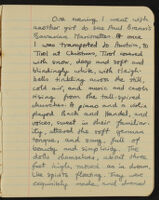 One evening I went with
another girl to see Paul Brann's
Bavarian Marionettes. At once
I was transported to Austria, to
Tirol at Christmas, Tirol covered
with snow, deep and soft and
blindingly white, with sleigh-
bells tinkling across the still,
cold air, and music and carols
rising from the tall spired
churches. A piano and a violin
played Bach and Handel, and
voices, sweet in their familiar-
ity, uttered the soft German
tongue, and sang, full of
beauty and simplicity. The
dolls themselves, about three
feet high, moved as in dawn,
like spirits floating. They were
exquisitely made, and dressed